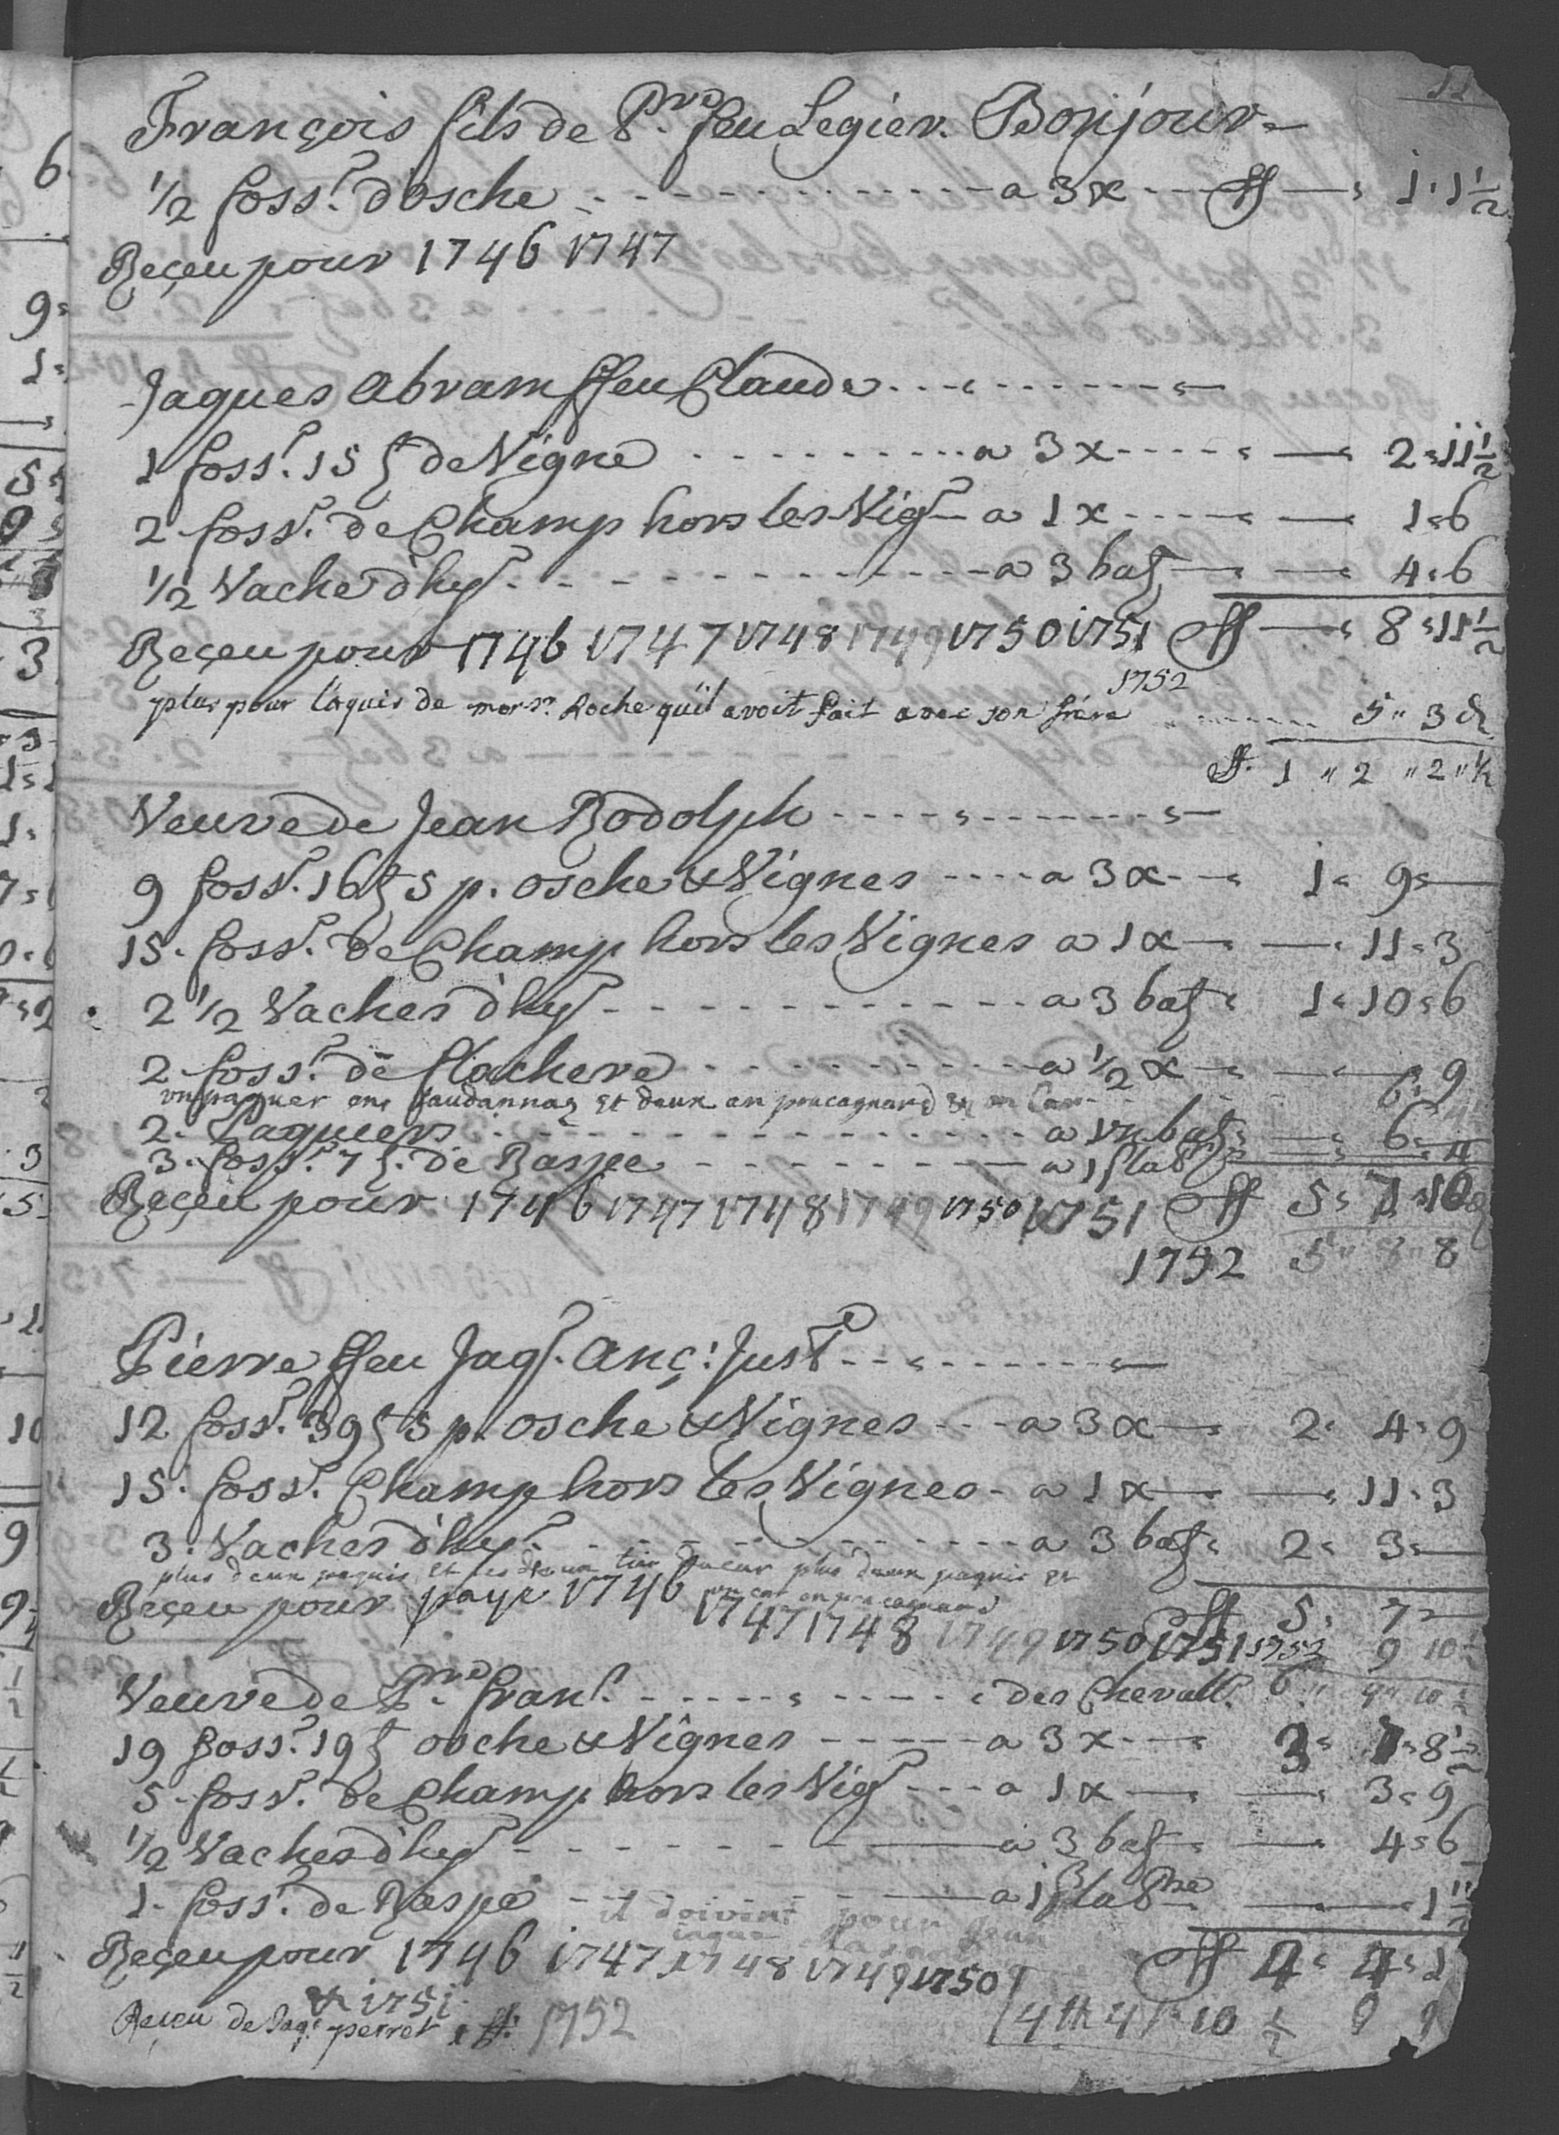 11
François fils de Pre. feu Legier. Bonjour
1/2 foss.r dosche - - - a 3 x - - - ff — 1 · 1 1/2
Reçeu pour 1746 1747
Jaques Abram ffeu Claude
1 foss.r 15 ʒ de Vigne - - - a 3 x - - - — 2 " 11 1/2
2 foss.r de Champ hors les Vig. a 1 x - - - — 1 " 6
1/2 Vache d'hyʒ - - - a 3 batʒ — — 4 " 6
Reçeu pour 1746 1747 1748 1749 1750 1751 ff — 8 " 11 1/2
1752
plus pour l'aquis de monsr. Roche qu'il avoit fait avec son frére - - - 5 " 3 &
ff. 1 " 2 " 2 " 1/2
Veuve de Jean Rodolph
9 foss.r 16 ʒ 5 p. osche & Vignes - - - a 3 x - - 1 " 9 " —
15 foss.r de Champ hors les Vignes a 1 x — — 11 " 3
2 1/2 Vaches d'hyʒ - - - a 3 batʒ 1 " 10 " 6
2 foss.r de flachere - - - a 1/2 x — — 9
et deux an 6
2. Paquiers - - - a un batʒ — 6 "
3. foss.r 7 ʒ. de Raspe - - - a 1 fla 4
Reçeu pour 1746 1747 1748 1749 1750 1751 ff 5 " 10
1752 5 " 8 " 8
Pierre ffeu Jaqʒ. Anç: Just.
12 foss.r 39 ʒ 5 p. osche & Vignes - - - a 3 x — 2 " 4 " 9
15 foss.r Champ hors les Vignes - a 1 x — — 11 " 3
3. Vaches d'hyʒ - - - a 3 batʒ 2 " 3 " —
plus deux paquis et plus deux paquis et
Reçeu pour paye 1746 1747 1748 1749 1750 1751 1752 ff 5 " 7 —
9 10
Veuve de Pre. franʒ. - - - des Chevall. 6 " 4 " 10
19 foss.r 19 ʒ osche & Vignes - - - a 3 x - - 3 " 8 1/2
5 foss.r de Champ hors les Vigʒ - - - a 1 x — — 3 " 9
1/2 Vaches d'hyʒ - - - a 3 batʒ — 4 " 6
1 foss.r de Raspe - - - a 1 fla — — 1 1/2
il doivent pour Jean
Reçeu pour 1746 1747 1748 1749 1750 ff 4 " 4 " 1
& 1751
Receu de Jaq. perret 1752 4 ff 4 10 1/2